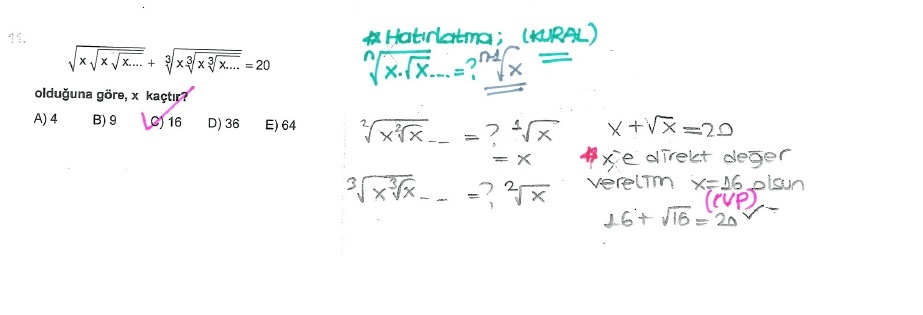 11.
√x√x√x.... + ∛x∛x∛x.... = 20
olduğuna göre, x kaçtır?
A) 4 B) 9 C) 16 D) 36 E) 64
* Hatırlatma; (KURAL)
ⁿ√x.√x... = ? ⁿ⁻¹√x
²√x²√x... = ? ¹√x
= x
³√x³√x... = ? ²√x
x + √x = 20
* x'e direkt değer
verelim x=16 olsun
(rvp)
16 + √16 = 20 ✓